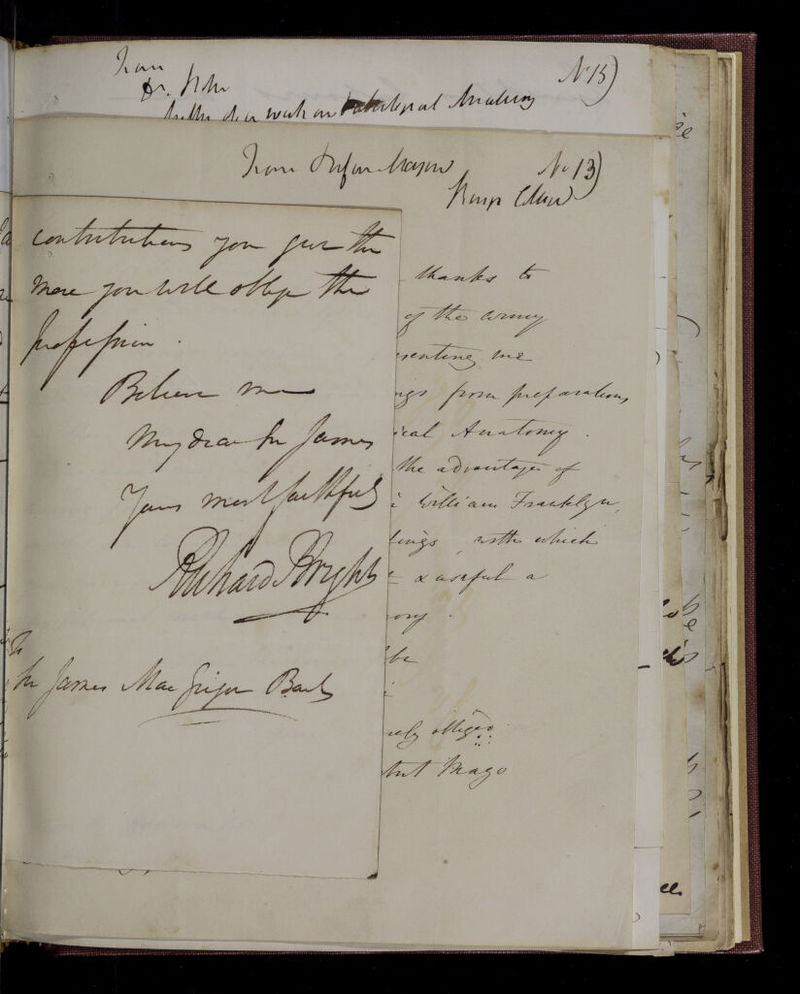 From
Dr.
N° 15)
work on Pathological Anatomy
From Professor Mayo
N° 13)
Kings College
contributions you give the
more you will oblige the
profession.
Believe me
My dear Sir James
Yours most faithfully
Richard Bright
To
Sir James MacGrigor Bart
thanks to
of the army
esenting me
ngs from preparations
ical Anatomy.
the advantages of
William Franklyn,
lings with which
& useful a
ory.
be
ely obliged
Mayo